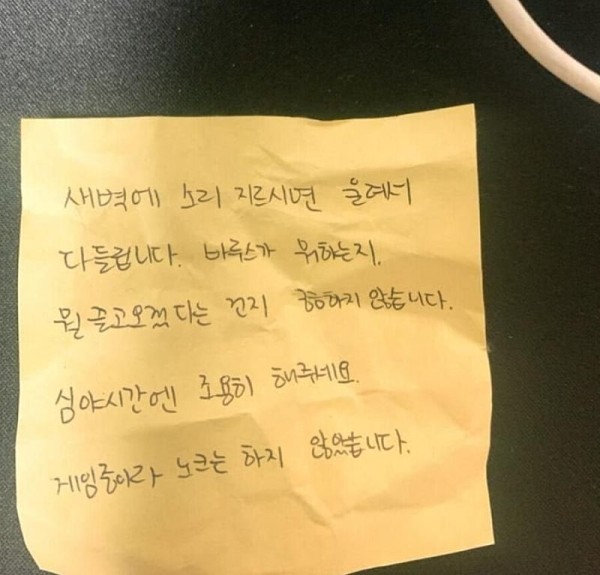 새벽에 소리 지르시면 울려서
다들립니다. 바루스가 뭐하는지,
뭘 끌고오겠다는 건지 궁금하지 않습니다.
심야시간엔 조용히 해주세요.
게임중이라 노크는 하지 않았습니다.